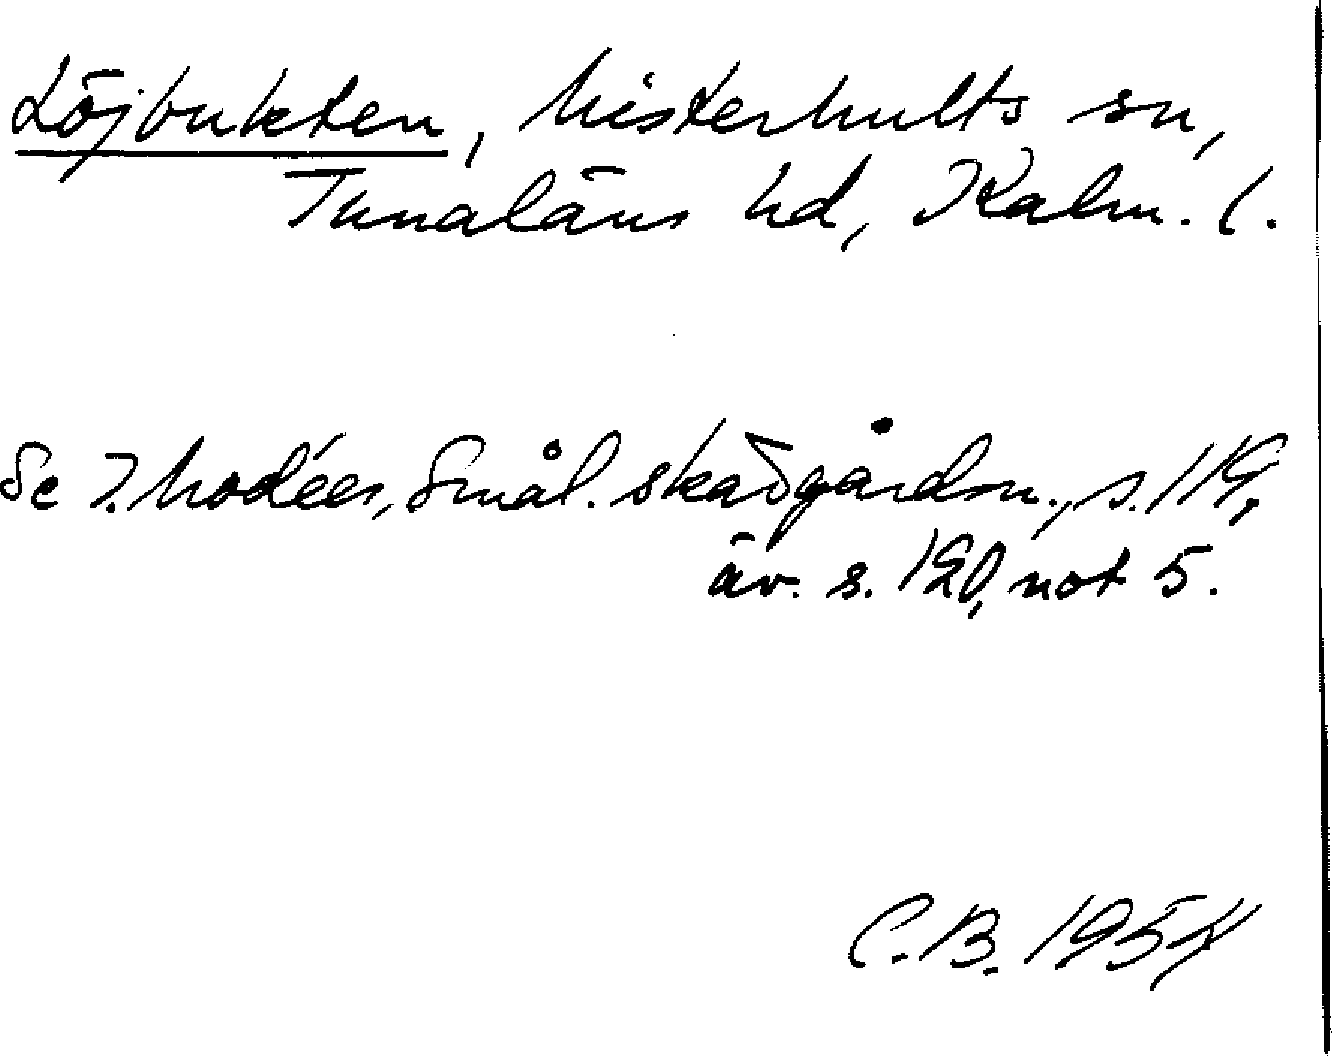 Löjbukten, Misterhults sn,
Tunaläns hd, Kalm. l.
Se I. Modéer, Smål. skärgårdsn., s. 119,
äv. s. 120, not 5.
C.B. 1954